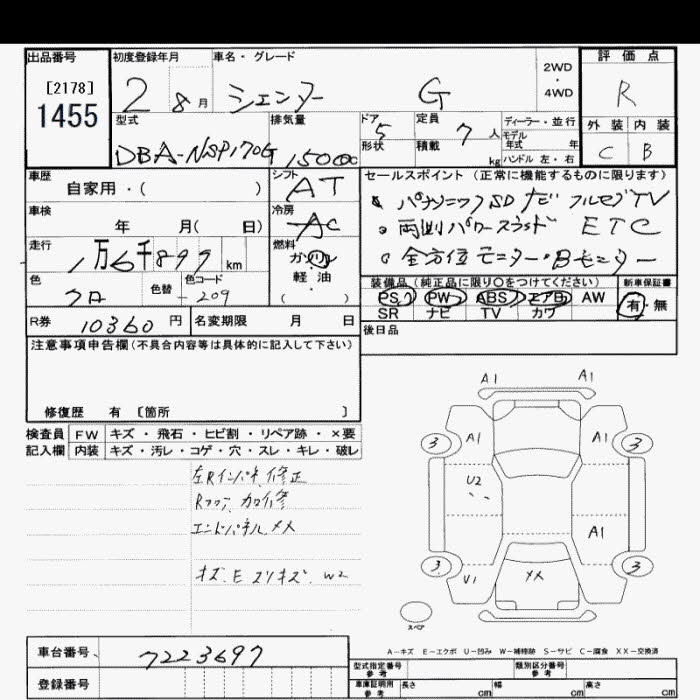 出品番号 初度登録年月 車名・グレード 評価点
[2178] 2WD
1455 2 8月 シエンター G ・ R
4WD
型式 排気量 ドア 5 定員 7人 ディーラー・並行 外装 内装
DBA-NSP170G 1500cc 形状 積載 kg モデル年式 年 C B
ハンドル 左・右
車歴 自家用・( ) シフト AT セールスポイント (正常に機能するものに限ります)
車検 年 月( 日) 冷房 AC パナソニックSDナビ フルセグTV
走行 1万6千897km 燃料 ガソリン 軽・油 ( ) 両側パワースライド ETC
全方位モニター・Bモニター
色 クロ 色替 色コード 209 装備品(純正品に限り○をつけてください) 新車保証書
PS PW ABS エアB AW 有・無
R券 10360円 名変期限 月 日 SR ナビ TV カワ
注意事項申告欄(不具合内容等は具体的に記入して下さい) 後日品
修復歴 有 [箇所 ]
検査員 FW キズ・飛石・ヒビ割・リペア跡・×要
記入欄 内装 キズ・汚レ・コゲ・穴・スレ・キレ・破レ
左Rインパネ修正
Rフロア カロ修
エンドパネルメメ
キズ.E スリキズ.W2
A1 A1
3 A1 A1 3
U2
A1
3 U1 メメ 3
スペア
A-キズ E-エクボ U-凹み W-補修跡 S-サビ C-腐食 XX-交換済
車台番号 7223697 型式指定番号 参考 類別区分番号 参考
登録番号 車庫証明用 参考 長さ cm 幅 cm 高さ cm